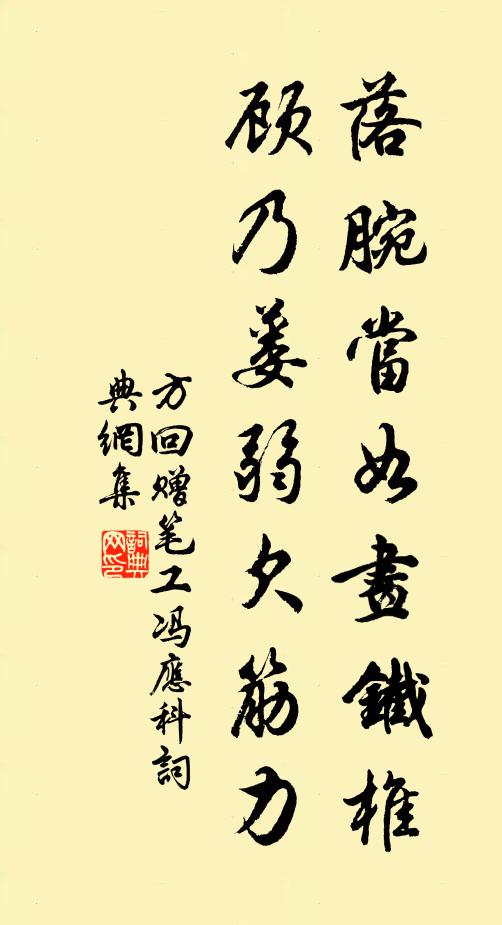 落腕當如畫鐵椎
顧乃萎弱欠筋力
方回赠笔工冯應科詞
典網集
詞典网印